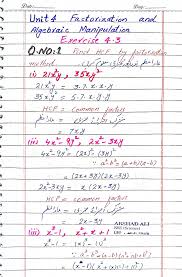 Date: Day:
Unit 4 Factorization and
Algebraic Manipulation
Exercise 4.3
Q.NO:1 Find HCF by factorization
method
i) 21x²y, 35xy²
21x²y = 3.7.x.x.y
35xy² = 5.7.x.y.y
HCF = common factors
= 7xy
ii) 4x²-9y², 2x²-3xy
4x²-9y² = (2x)²-(3y)²
∵ a²-b² = (a+b)(a-b)
= (2x+3y)(2x-3y)
2x²-3xy = x(2x-3y)
HCF = common factors
= 2x-3y
ARSHAD ALI
iii) x³-1, x²+x+1
x³-1 = (x)³-(1)³
= (x-1)(x²+x+1)